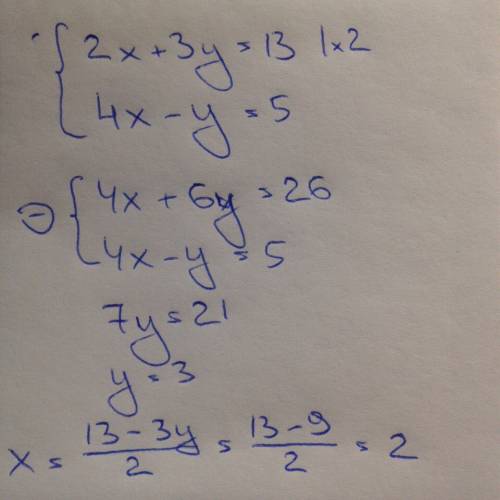 { 2x + 3y = 13 | x 2
4x - y = 5
⊖ { 4x + 6y = 26
4x - y = 5
7y = 21
y = 3
x = (13 - 3y)/2 = (13 - 9)/2 = 2